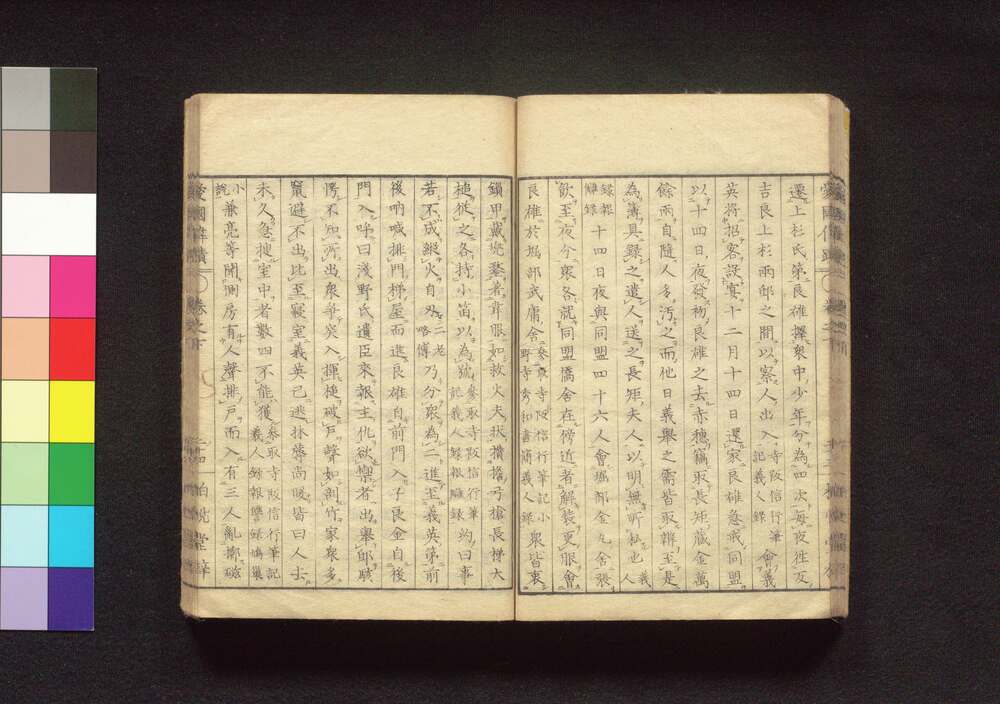 還上杉氏第良雄擇衆中少年分為四次每夜往反
吉良上杉兩邸之間以察人出入寺阪信行筆記義人錄會義
英將招客設宴十二月十四日還家良雄急戒同盟
以十四日夜發初良雄之去赤穗竊取長矩藏金萬
餘兩自隨人多汚之而他日義舉之需皆取辨至是
為簿具錄之遣人送之長矩夫人以明無所私也義人
錄報讎錄十四日夜與同盟四十六人會堀部金丸舍張
飲至夜分衆各就同盟僑舍在傍近者解裝更服會
良雄於堀部武庸舍參取寺阪信行筆記小野寺秀和書簡義人錄衆皆衷
鎖甲戴兜鍪著韋服如救火夫狀攢擔弓槍長槽大
槌從之各持小笛以為號參取寺阪信行筆記義人錄報讎錄約曰事
若不成縱火自刄二老略傳乃分衆為二進至義英第前
後吶喊排門梯屋而進良雄自前門入子良金自後
門入呼曰淺野氏遺臣來報主仇欲禦者出舉邸駭
愕不知所出衆爭突入揮槌破戸聲如剖竹家衆多
竄避不出比至寢室義英已逃衽蓐尚暖皆曰人去
未久急搜室中者數四不能獲參取寺阪信行筆記義人錄報讎錄鳩巢小
說兼亮等聞厠房有人聲排戸而入有三人亂擲磁
愛國偉績 卷之下